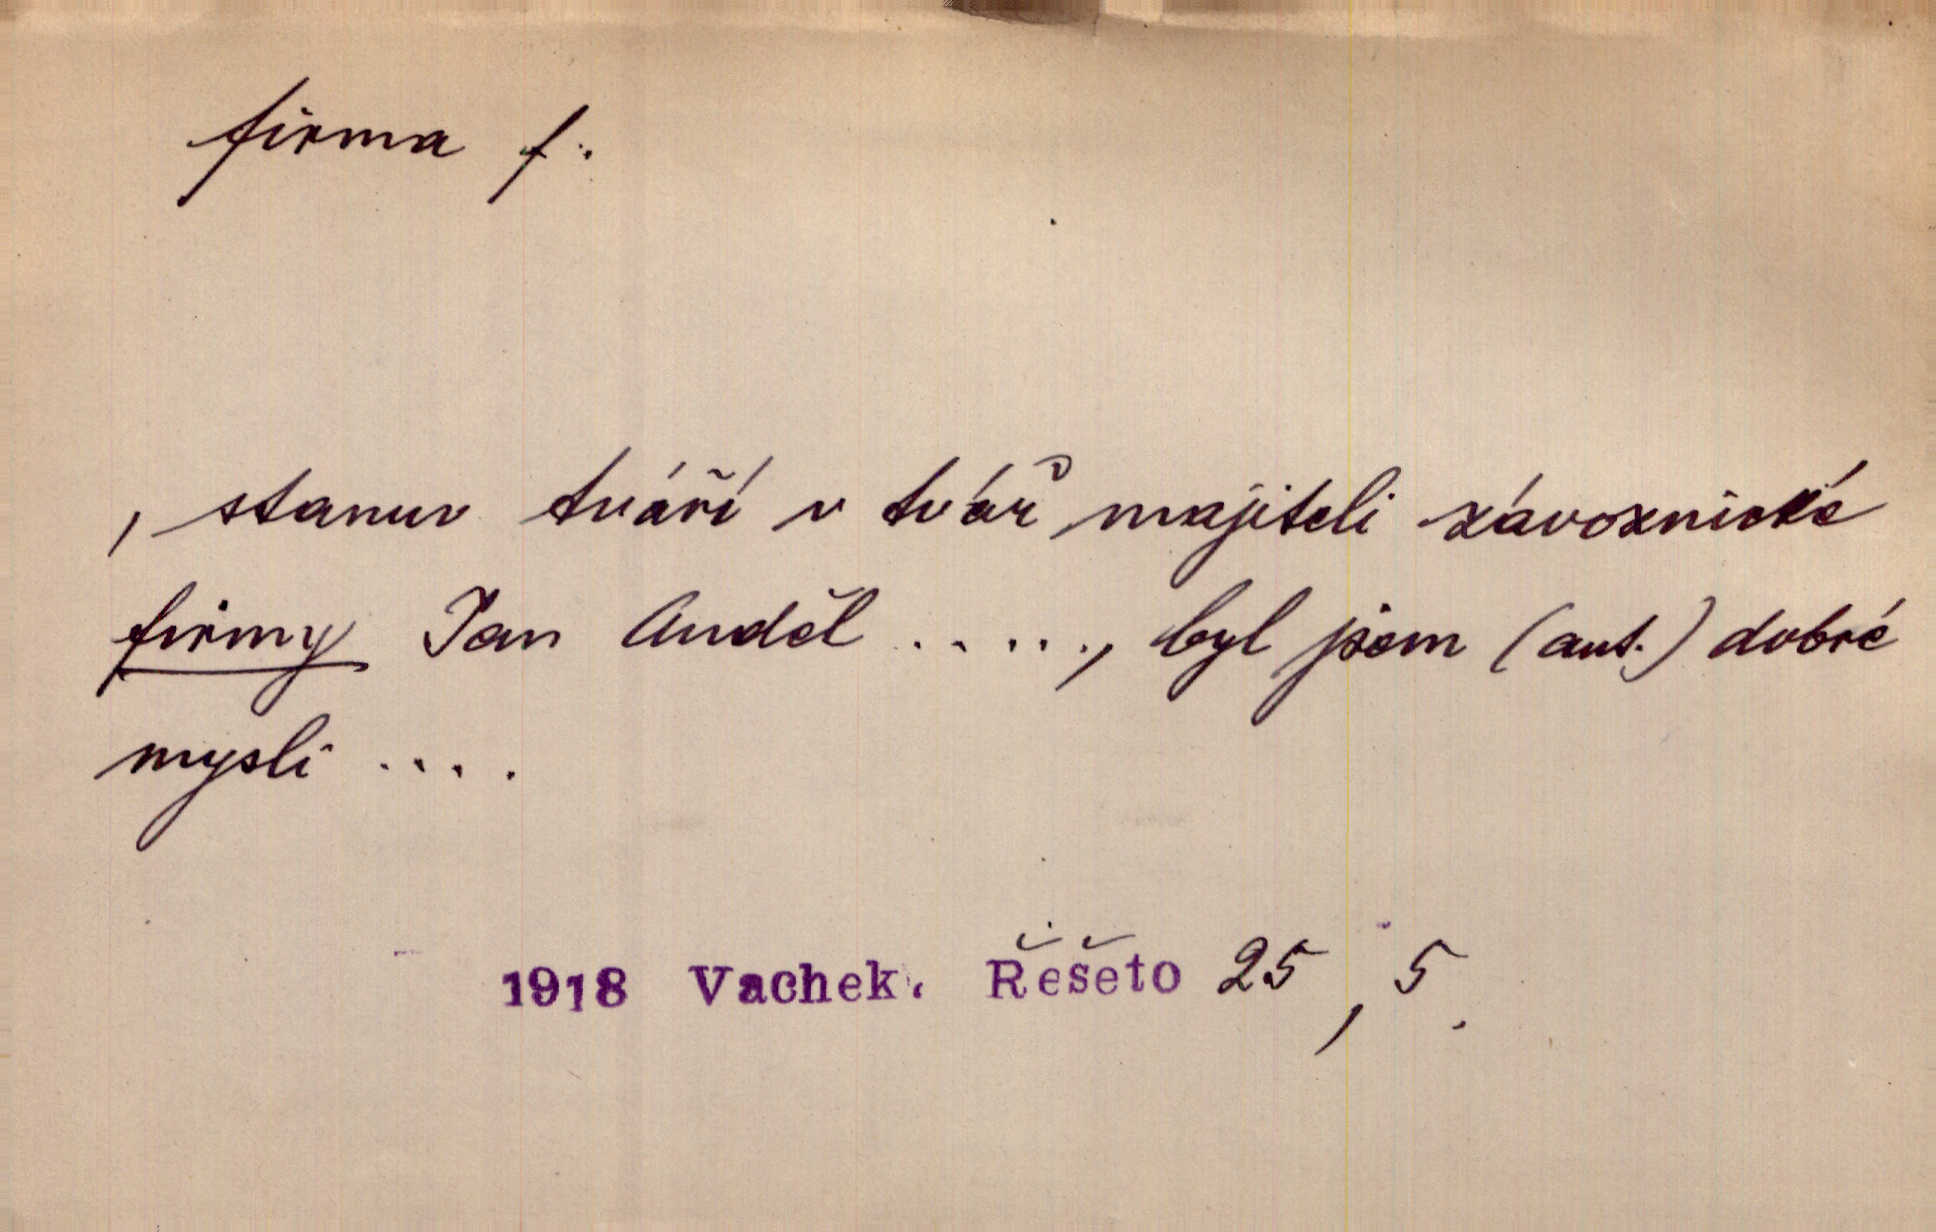 firma f.
, stanuv tváří v tvář majiteli závoznické
firmy Jan Anděl ....., byl jsem (aut.) dobré
mysli ....
1918 Vachek. Řešeto 25, 5.